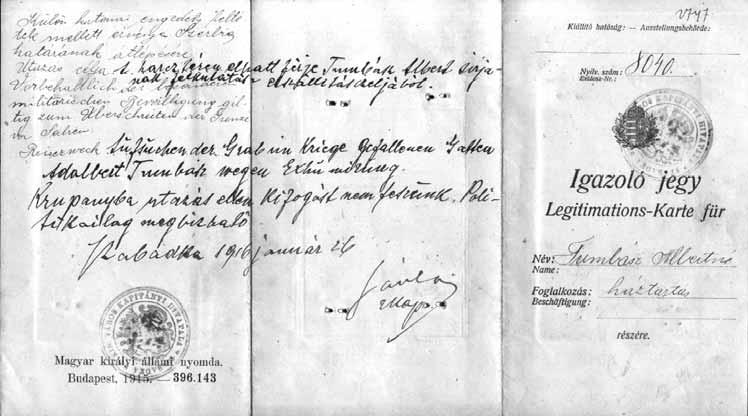 Külön hatósági engedély
mellett érvényes Szerbia
határának átlépésére
Utazás célja a harcztéren elhalt férje Tumbász Albert sirjá-
nak felkutatása elszállitás czéljából.
Vorbehaltlich der
militärischen Bewilligung gil-
tig zum Überschreiten der Grenze
Reisezweck Aufsuchen der Grab im Kriege Gefallenen Gatten
Adalbert Tumbász wegen Exhumirung.
Krupanyba utazás ellen kifogást nem teszünk. Poli-
tikailag megbizható
Szabadka 1916 január 26
Magyar királyi állami nyomda.
Budapest, 1915. — 396.143
Kiállító hatóság: — Ausstellungsbehörde:
Nyilv. szám: 8040.
Evidenz-Nr.:
Igazoló jegy
Legitimations-Karte für
Név: Tumbász Albertné
Name:
Foglalkozás: háztartás
Beschäftigung:
részére.